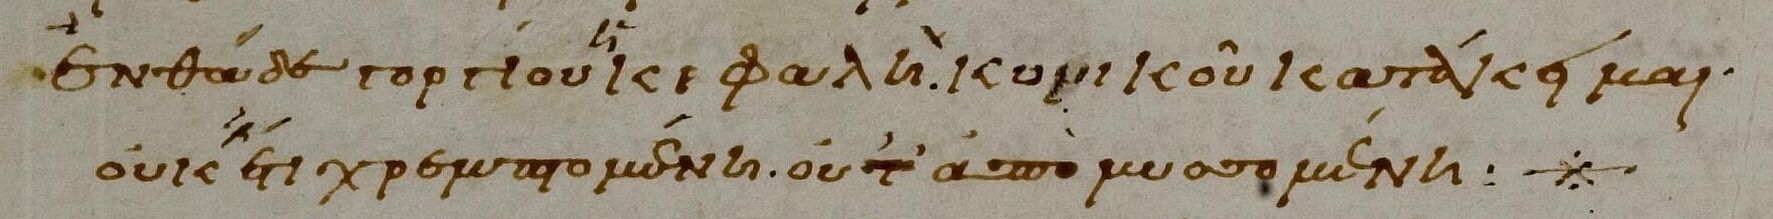 Ἐνθάδε γοργίου ἡ κεφαλὴ. κυνικοῦ κατάκειμαι·
οὐκ ἔτι χρεμπτομένη. οὔτ' ἀπομυσσομένη :